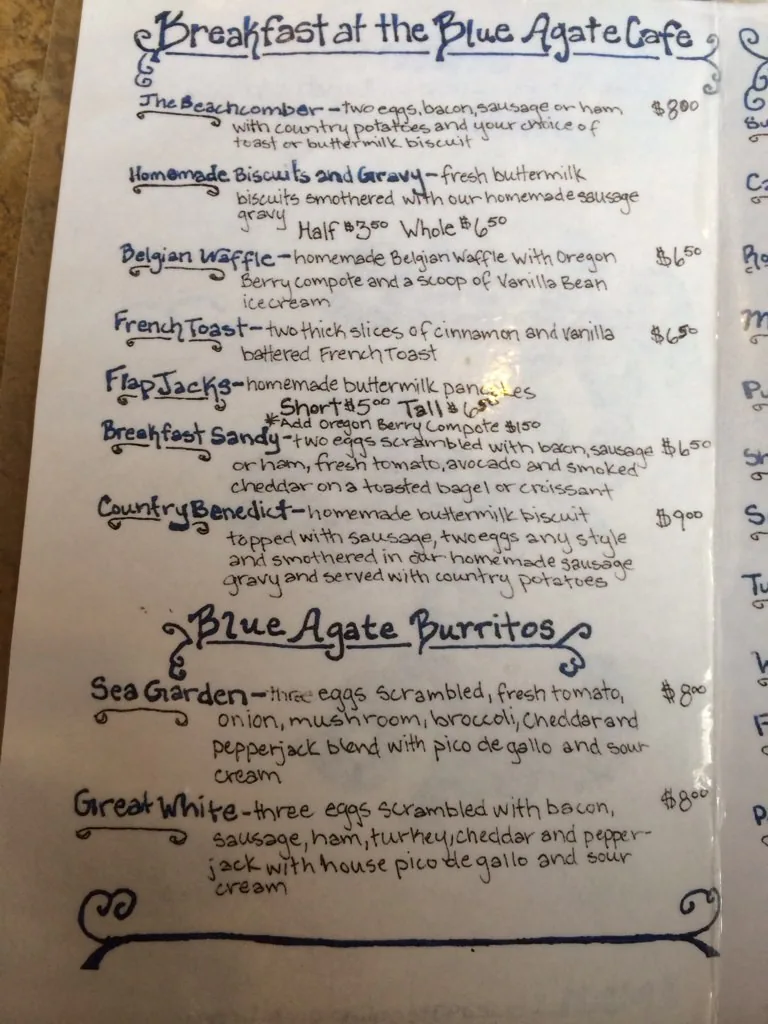 Breakfast at the Blue Agate Cafe
The Beachcomber - two eggs, bacon, sausage or ham, $8.00
with country potatoes and your choice of
toast or buttermilk biscuit
Homemade Biscuits and Gravy - fresh buttermilk
biscuits smothered with our homemade sausage
gravy Half $3.50 Whole $6.50
Belgian Waffle - homemade Belgian Waffle with Oregon $6.50
Berry compote and a scoop of Vanilla Bean
ice cream
French Toast - two thick slices of cinnamon and vanilla $6.50
battered French Toast
Flap Jacks - homemade buttermilk pancakes
Short $5.00 Tall $6.50
*Add Oregon Berry Compote $1.50
Breakfast Sandy - two eggs scrambled with bacon, sausage $6.50
or ham, fresh tomato, avocado and smoked
cheddar on a toasted bagel or croissant
Country Benedict - homemade buttermilk biscuit $9.00
topped with sausage, two eggs any style
and smothered in our homemade sausage
gravy and served with country potatoes
Blue Agate Burritos
Sea Garden - three eggs scrambled, fresh tomato, $8.00
onion, mushroom, broccoli, cheddar and
pepperjack blend with pico de gallo and sour
cream
Great White - three eggs scrambled with bacon, $8.00
sausage, ham, turkey, cheddar and pepper-
jack with house pico de gallo and sour
cream